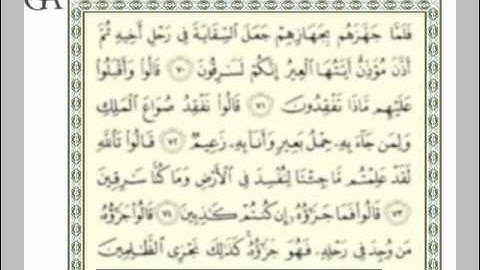 GA
فَلَمَّا جَهَّزَهُم بِجَهَازِهِمْ جَعَلَ السِّقَايَةَ فِي رَحْلِ أَخِيهِ ثُمَّ
أَذَّنَ مُؤَذِّنٌ أَيَّتُهَا الْعِيرُ إِنَّكُمْ لَسَارِقُونَ ٧٠ قَالُوا وَأَقْبَلُوا
عَلَيْهِم مَّاذَا تَفْقِدُونَ ٧١ قَالُوا نَفْقِدُ صُوَاعَ الْمَلِكِ
وَلِمَن جَاءَ بِهِ حِمْلُ بَعِيرٍ وَأَنَا بِهِ زَعِيمٌ ٧٢ قَالُوا تَاللَّهِ
لَقَدْ عَلِمْتُم مَّا جِئْنَا لِنُفْسِدَ فِي الْأَرْضِ وَمَا كُنَّا سَارِقِينَ
٧٣ قَالُوا فَمَا جَزَاؤُهُ إِن كُنتُمْ كَاذِبِينَ ٧٤ قَالُوا جَزَاؤُهُ
مَن وُجِدَ فِي رَحْلِهِ فَهُوَ جَزَاؤُهُ كَذَٰلِكَ نَجْزِي الظَّالِمِينَ